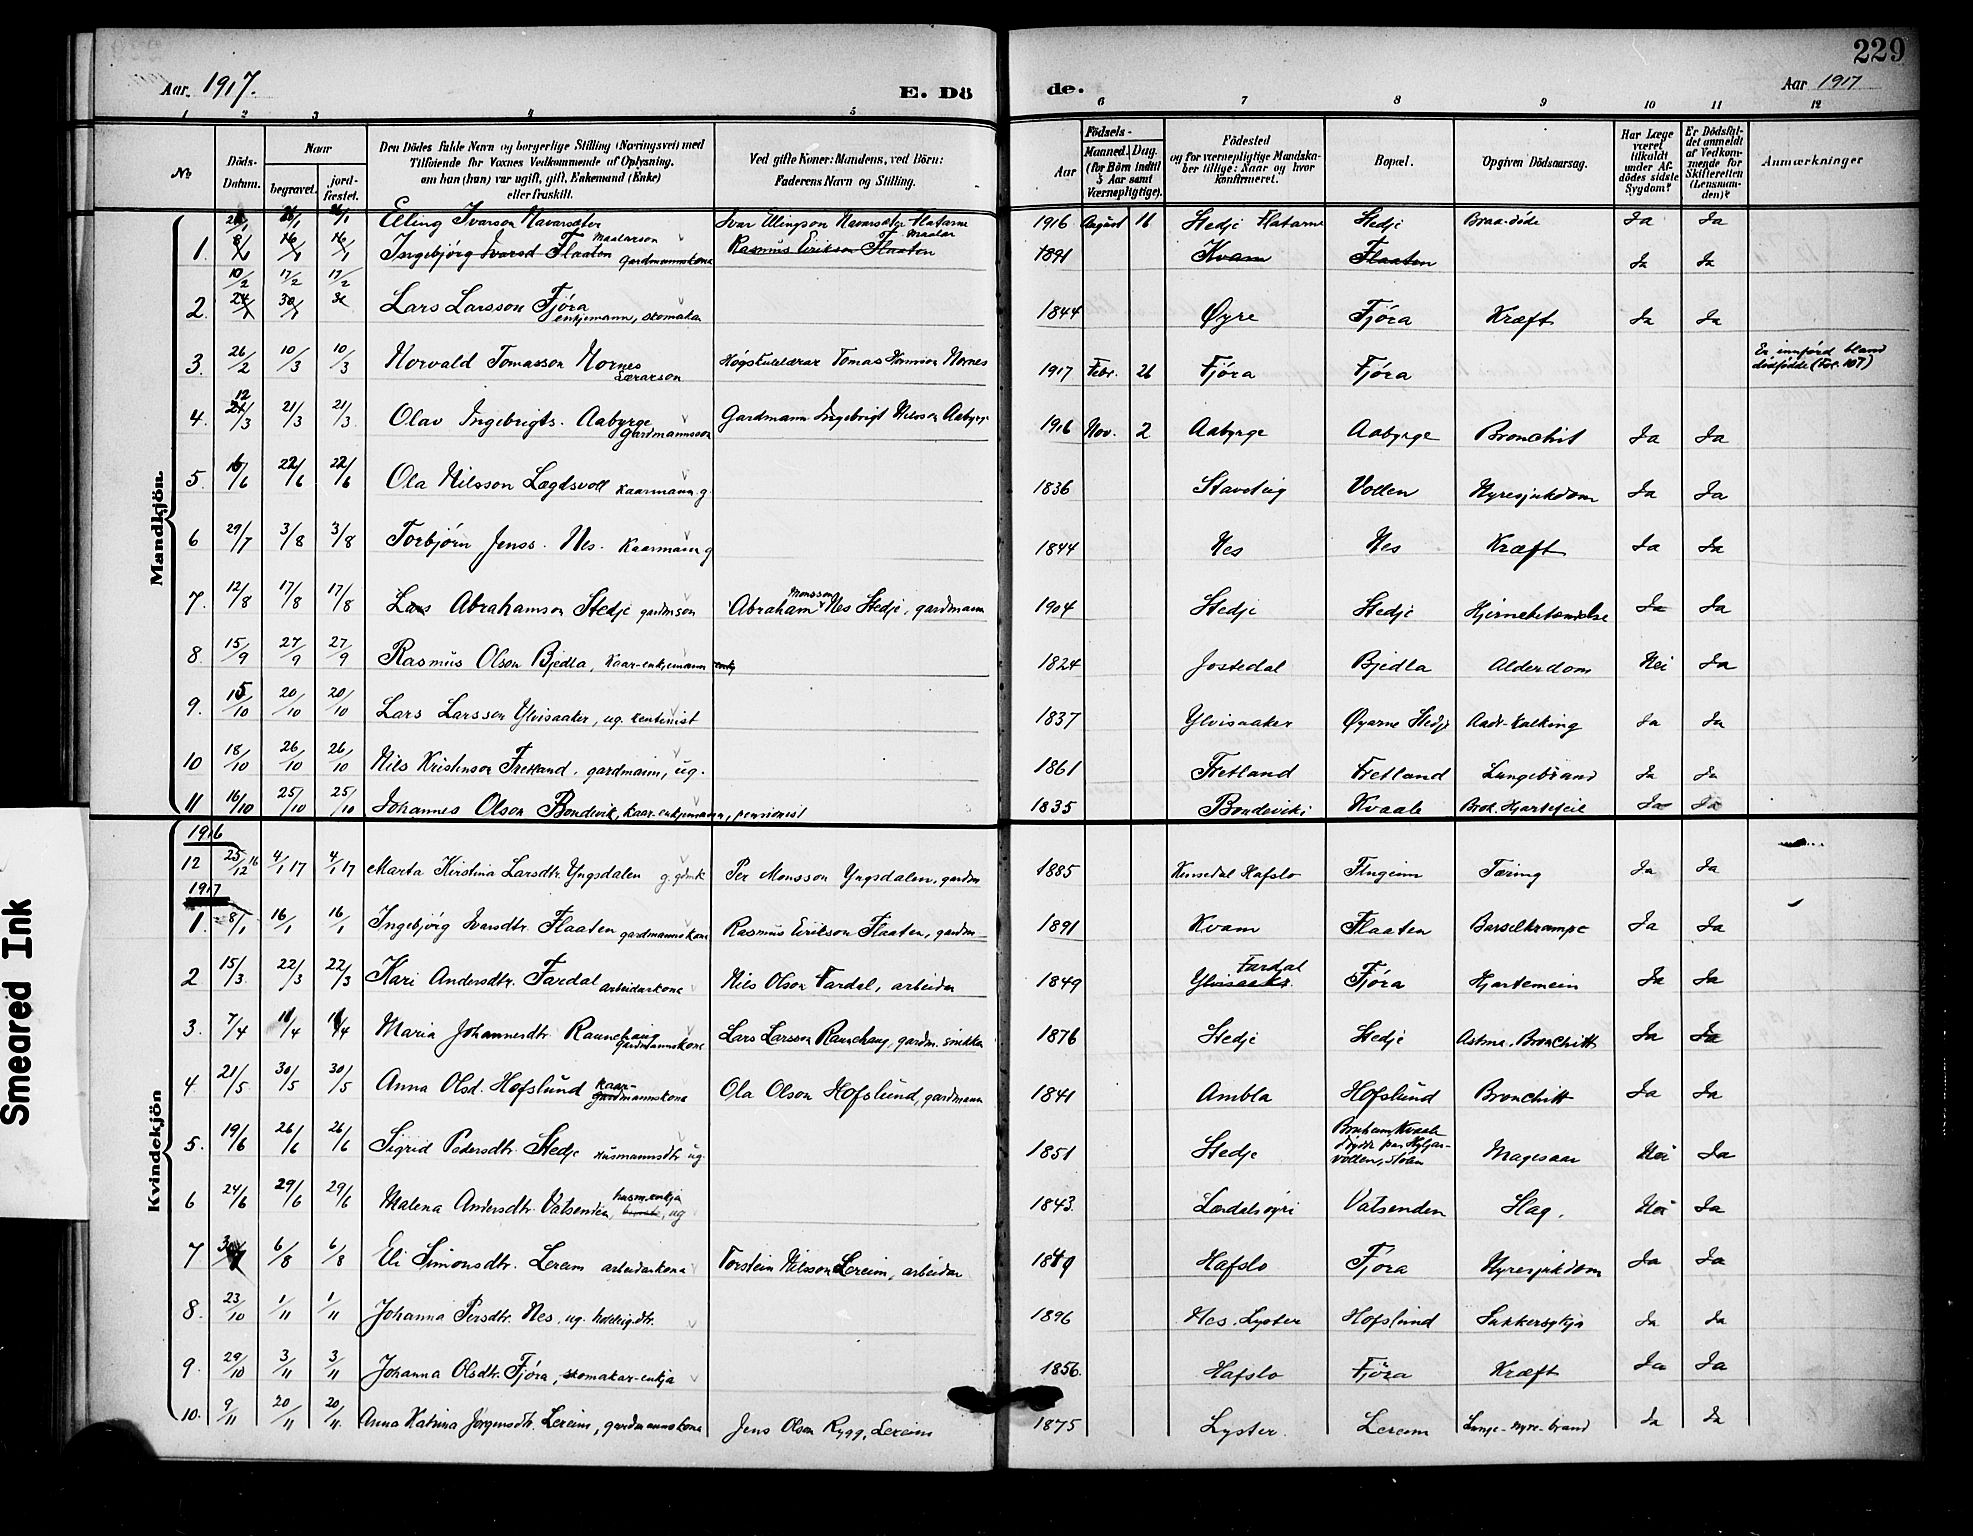 229
Aar. 1917.
E. Dö
de.
Aar 1917
1 2 3 4 5 6 7 8 9 10 11 12
No
Döds-Datum.
Naar
begravet.
jord-fæstet.
Den Dödes fulde Navn og borgerlige Stilling (Næringsvei) med
Tilföiende for Voxnes Vedkommende af Oplysning,
om han (hun) var ugift, gift, Enkemand (Enke)
eller fraskilt.
Ved gifte Koner: Mandens, ved Börn:
Faderens Navn og Stilling.
Aar
Födsels-
Maaned. Dag.
(for Börn indtil
5 Aar samt
Værnepligtige).
Födested
og for værnepligtige Mandska-
ber tillige: Naar og hvor
konfirmeret.
Bopæl.
Opgiven Dödsaarsag.
Har Læge
været
tilkaldt
under Af-
dödes sidste
Sygdom?
Er Dödsfal-
det anmeldt
af Vedkom-
mende for
Skifteretten
(Lensman-
den)?
Anmærkninger
Mandkjön.
Elling Ivarson Navarsæter Maalarson Ivar Ellingson Navarsæter Flatarne Maalar 1916 August 16 Stedje Flatarne Stedje Braa-döde Ja Ja
1. 8/1 16/1 16/1 Ingebjörg Ivarsd Flaaten gardmannskona Rasmus Erikson Flaaten 1891 Kvam Flaaten Ja Ja
10/2 17/2 17/2
2. Lars Larsson Fjöra enkjemann, skomakar 1844 Øyre Fjöra Kræft Ja Ja
3. 26/2 10/3 10/3 Norvald Tomasson Nornes Lærarson Högskulelærar Tomas Nornes 1917 Febr. 26 Fjöra Fjöra Er innförd bland dödfödde (Fol. 107)
4. 12/3 21/3 21/3 Olav Ingebrigts. Aabyrge Gardmannsson Gardmann Ingebrigt Nilsson Aabyrge 1916 Nov. 2 Aabyrge Aabyrge Bronchit Ja Ja
5. 16/6 22/6 22/6 Ola Nilsson Lægdsvoll kaarmann g. 1836 Stavsteig Vollen Nyresjukdom Ja Ja
6 29/7 3/8 3/8 Torbjörn Jenss. Nes. kaarmann g 1844 Nes Nes Kræft Ja Ja
7. 12/8 17/8 17/8 Lars Abrahamson Stedje gardmson Abraham Monsson Nes Stedje, gardmann 1904 Stedje Stedje Hjernebetændelse Ja Ja
8. 15/9 27/9 27/9 Rasmus Olson Bjedla, kaar-enkjemann 1824 Jostedal Bjedla Alderdom Nei Ja
9. 15/10 20/10 20/10 Lars Larsson Ylvisaaker, ug. rentenist 1837 Ylvisaaker Øyarne Stedje Aadr-kalking Ja Ja
10 18/10 26/10 26/10 Nils Kristenson Fretland, gardmann, ug. 1861 Fretland Fretland Lungebrand Ja Ja
11 16/10 25/10 25/10 Johannes Olson Bondevik, kaar-enkjemann, pensionist 1835 Bondeviki Kvaale Brok. Hjartefeil Ja Ja
Kvindekjön
1916
12 25/12 16 4/1 17 4/1 17 Marta Kirstina Larsdtr Yngsdalen g. gdmk Per Monsson Yngsdalen, gardm 1885 Kinsedal Hafslo Flugeim Tæring Ja Ja
1917
1. 8/1 16/1 16/1 Ingebjörg Ivarsdtr. Flaaten gardmannskona Rasmus Eirikson Flaaten, gardm 1891 Kvam Flaaten Barselkrampe Ja Ja
2 15/3 22/3 22/3 Kari Andersdtr. Fardal arbeidarkona Nils Olson Fardal, arbeidar 1849 Ylvisaaker Fardal Fjöra Hjartemein Ja Ja
3. 7/4 11/4 11/4 Maria Johannesdtr Raunehaug gardmannskona Lars Larsson Raunehaug, gardm. snikkar 1876 Stedje Stedje Astma. Bronchitt Ja Ja
4 21/5 30/5 30/5 Anna Olsd. Hofslund kaar-gardmannskona Ola Olson Hofslund, gardmann 1841 Ambla Hofslund Bronchitt Ja Ja
5. 19/6 26/6 26/6 Sigrid Pedersdtr. Stedje husmannsdtr ug. 1851 Stedje Kvaale Magesaar Nei Ja
6 24/6 29/6 29/6 Malena Andersdtr. Vatsenden, husm.enkja, ug 1843. Lærdalsöyri Vatsenden Slag. Nei Ja
7 6/8 6/8 Eli Simonsdtr. Lereim arbeidarkona Torstein Nilsson Lereim, arbeidar 1849 Hafslo Fjöra Nyresjukdom Ja Ja
8. 23/10 1/11 1/11 Johanna Persdtr. Nes, ug. 1896 Nes. Lyster Hofslund Sukkersykja Ja Ja
9. 29/10 3/11 3/11 Johanna Olsdtr. Fjöra, skomakar-enkja 1856. Hafslo Fjöra Kræft Ja Ja
10. 9/11 20/11 20/11 Anna Katrina Jörgensdtr. Lereim, gardmannskona Jens Olson Rygg, Lereim 1875 Lyster. Lereim Lunge-nyre-brand Ja Ja
Smeared Ink